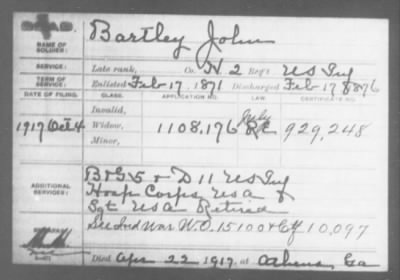 Bartley John
NAME OF SOLDIER:
SERVICE: Late rank, Co. H 2 Reg't US Inf
TERM OF SERVICE: Enlisted Feb 17, 1871 Discharged Feb 17, 1876
DATE OF FILING. CLASS. APPLICATION NO. LAW. CERTIFICATE NO.
Invalid,
1917 Oct 4 Widow, 1108,176 929,248
Minor,
B & G 5 & D 11 US Inf
ADDITIONAL SERVICES: Hosp Corps, USA &
Sgt USA Retired
See Ind War W.O. 15100 & Cf 10,097
Died Apr 22, 1917, at Athens, Ga